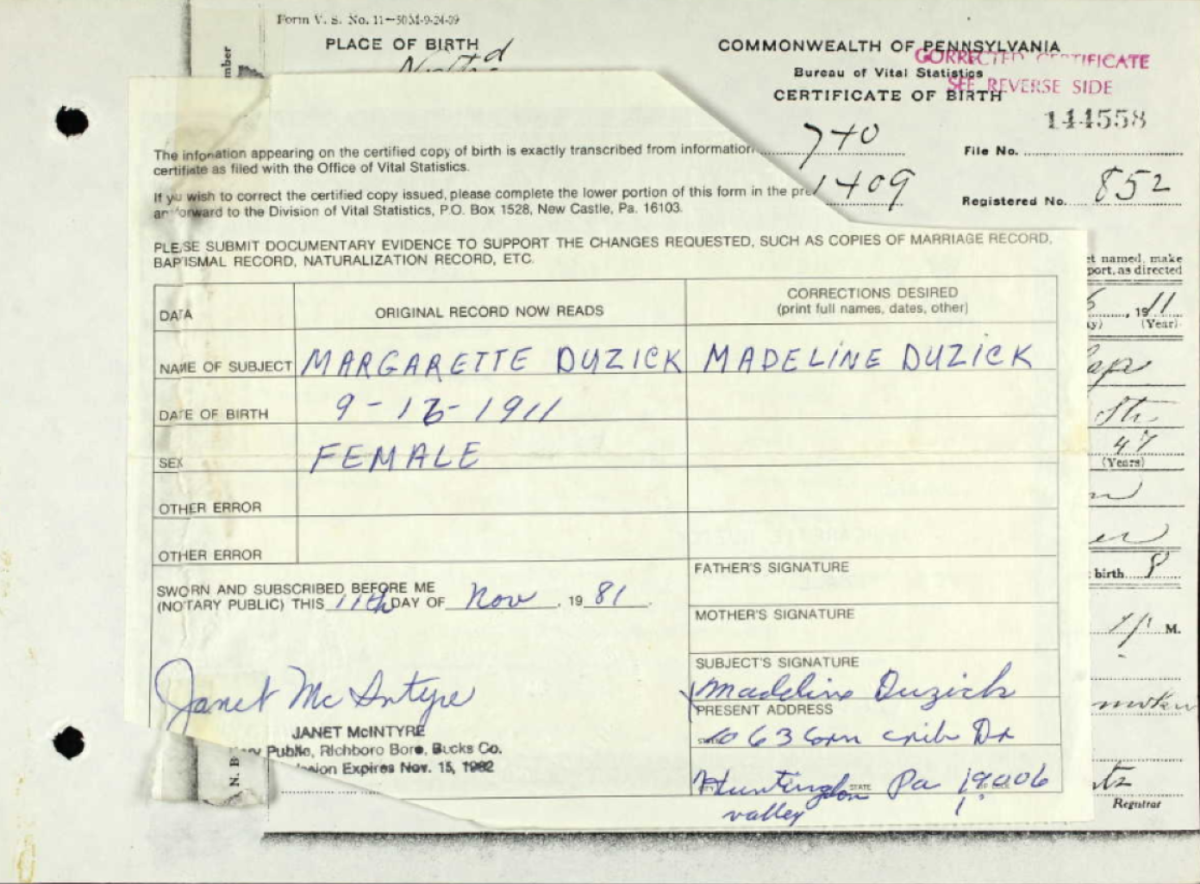 Form V. S. No. 11—50M-9-24-09
PLACE OF BIRTH
COMMONWEALTH OF PENNSYLVANIA
CORRECTED CERTIFICATE
Bureau of Vital Statistics
SEE REVERSE SIDE
CERTIFICATE OF BIRTH
144558
740
File No.
1409
Registered No. 852
The infomation appearing on the certified copy of birth is exactly transcribed from information
certifiate as filed with the Office of Vital Statistics.
If you wish to correct the certified copy issued, please complete the lower portion of this form in the pre
an forward to the Division of Vital Statistics, P.O. Box 1528, New Castle, Pa. 16103.
PLEASE SUBMIT DOCUMENTARY EVIDENCE TO SUPPORT THE CHANGES REQUESTED, SUCH AS COPIES OF MARRIAGE RECORD,
BAPTISMAL RECORD, NATURALIZATION RECORD, ETC.
t named, make
port, as directed
DATA
ORIGINAL RECORD NOW READS
CORRECTIONS DESIRED
(print full names, dates, other)
, 1911
y) (Year)
NAME OF SUBJECT MARGARETTE DUZICK MADELINE DUZICK
DATE OF BIRTH 9-16-1911
SEX FEMALE
47
(Years)
OTHER ERROR
OTHER ERROR
birth 8
FATHER'S SIGNATURE
SWORN AND SUBSCRIBED BEFORE ME
(NOTARY PUBLIC) THIS 11th DAY OF Nov, 19 81.
MOTHER'S SIGNATURE
M.
SUBJECT'S SIGNATURE
Janet McIntyre
Madeline Duzick
PRESENT ADDRESS
JANET McINTYRE
1063 Corn crib Dr
ry Public, Richboro Boro, Bucks Co.
ion Expires Nov. 15, 1982
Huntingdon Pa 19006
STATE
valley
N. B
Registrar